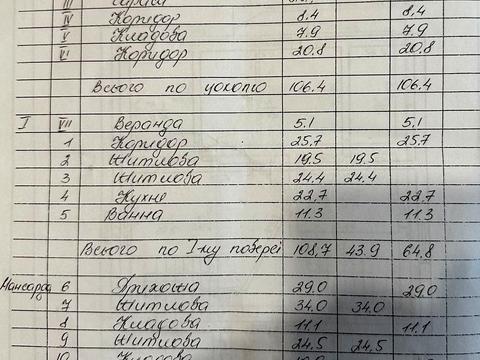 III
IV Коридор 8,4 8,4
V Кладова 7,9 7,9
VI Коридор 20,8 20,8
Всього по цоколю 106,4 106,4
I VII Веранда 5,1 5,1
1 Коридор 25,7 25,7
2 Житлова 19,5 19,5
3 Житлова 24,4 24,4
4 Кухне 22,7 22,7
5 Ванна 11.3 11.3
Всього по І-му поверсі 108,7 43.9 64,8
Мансарда 6 29,0 29,0
7 Житлова 34,0 34,0
8 Кладова 11,1 11,1
9 Житлова 24,5 24,5
10 Кладова